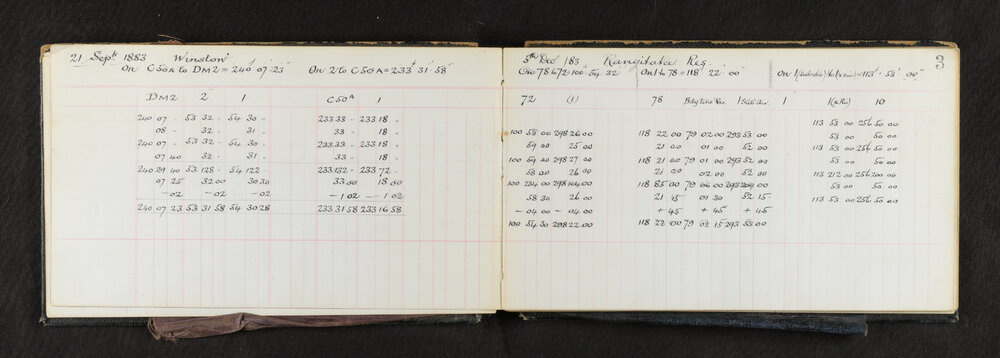 21 Septr. 1883 Winston
On C50A to DM2 = 240° 07' 23" On 2 to C50A = 233° 31' 58"
DM2 2 1 C50A 1
240 07 - 53 32 - 54 30 - 233 33 - 233 18 -
08 - 32 - 31 - 33 - 18 -
240 07 - 53 32 - 54 30 - 233 33 - 233 18 -
07 40 32 - 31 - 33 - 18 -
240 29 40 53 128 - 54 122 - 233 132 - 233 72 -
07 25 32 00 30 30 33 00 18 00
-02 -02 -02 -1 02 -1 02
240 07 23 53 31 58 54 30 28 233 31 58 233 16 58
5th Dec /83 Rangitata Res. 3
On 78 to 72 = 100° 54' 32 On 1 to 78 = 118° 22' 00" = 113° 53' 00"
72 (1) 78 Bdy Line Res 1 1 10
113 53 00 256 50 00
100 58 00 298 26 00 118 22 00 79 02 00 293 53 00 53 00 50 00
59 00 25 00 21 00 01 00 52 00 113 53 00 256 50 00
100 59 00 298 27 00 118 21 00 79 01 00 293 52 00 53 00 50 00
58 00 26 00 21 00 02 00 52 00 113 212 00 256 200 00
100 234 00 298 104 00 118 85 00 79 06 00 293 209 00 53 00 50 00
58 30 26 00 21 45 01 30 52 15 113 53 00 256 50 00
-04 00 -04 00 +45 +45 +45
100 54 30 298 22 00 118 22 00 79 02 15 293 53 00